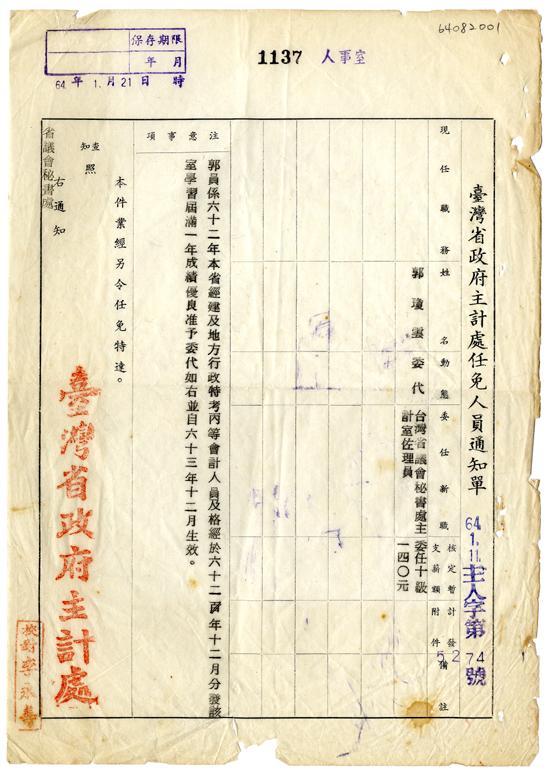 64082001
保存期限
年 月
64年1.月21日 時
1137 人事室
臺灣省政府主計處任免人員通知單
64.1.11.主人字第 74號
現任職務
姓名
動態
委任新職
核定暫支薪額
計發附件
備註
郭瓊雲
委代
台灣省議會秘書處主計室佐理員
委任十級
一四〇元
52
注意事項
郭員係六十二年本省經建及地方行政特考丙等會計人員及格經於六十二年十二月分發該
室學習屆滿一年成績優良准予委代如右並自六十三年十二月生效。
本件業經另令任免特達。
查照
知
右通知
省議會秘書處
臺灣省政府主計處
校對李